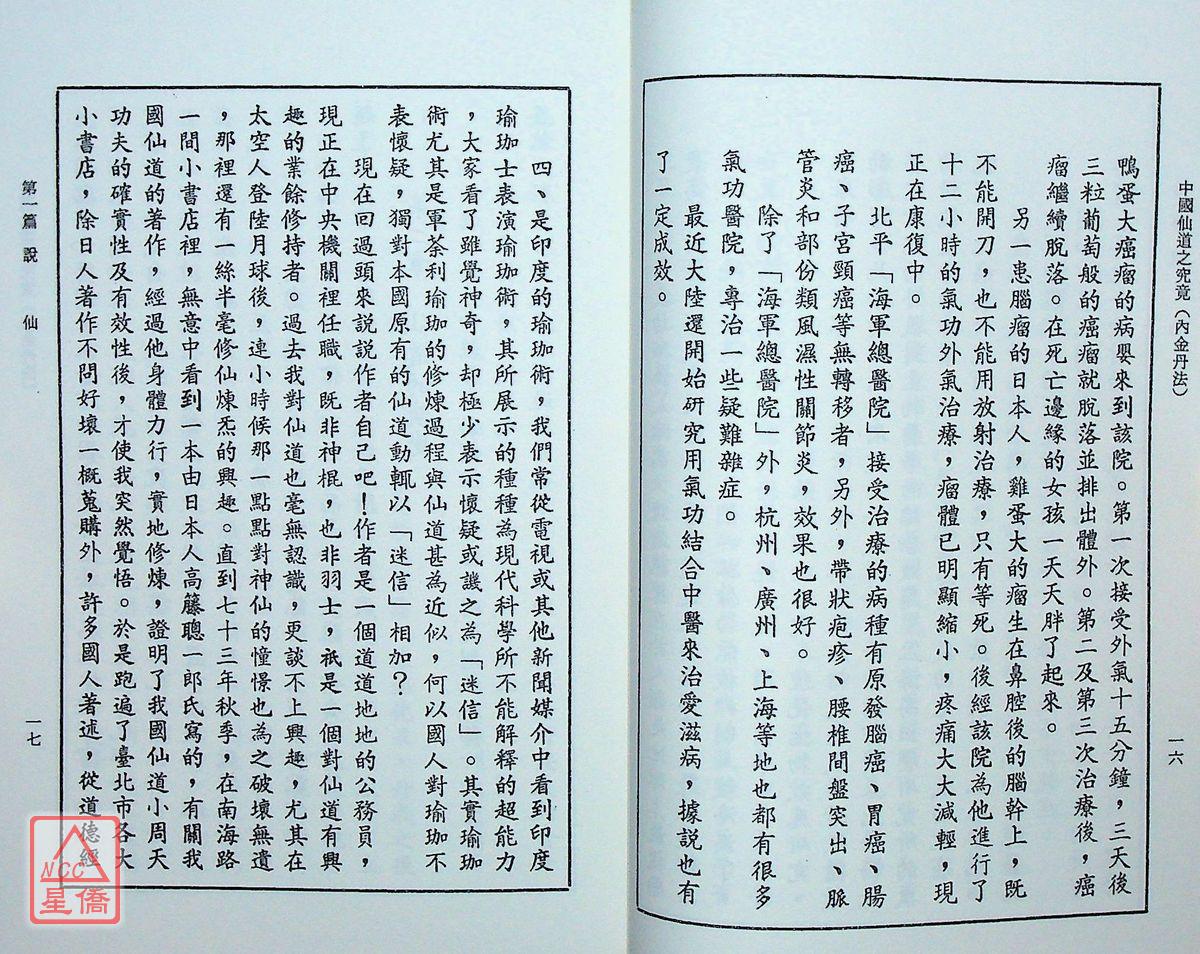 中國仙道之究竟（內金丹法）
一六
鴨蛋大癌瘤的病嬰來到該院。第一次接受外氣十五分鐘，三天後
三粒葡萄般的癌瘤就脫落並排出體外。第二及第三次治療後，癌
瘤繼續脫落。在死亡邊緣的女孩一天天胖了起來。
另一患腦瘤的日本人，雞蛋大的瘤生在鼻腔後的腦幹上，既
不能開刀，也不能用放射治療，只有等死。後經該院為他進行了
十二小時的氣功外氣治療，瘤體已明顯縮小，疼痛大大減輕，現
正在康復中。
北平「海軍總醫院」接受治療的病種有原發腦癌、胃癌、腸
癌、子宮頸癌等無轉移者，另外，帶狀疱疹、腰椎間盤突出、脈
管炎和部份類風濕性關節炎，效果也很好。
除了「海軍總醫院」外，杭州、廣州、上海等地也都有很多
氣功醫院，專治一些疑難雜症。
最近大陸還開始研究用氣功結合中醫來治愛滋病，據説也有
了一定成效。
四、是印度的瑜珈術，我們常從電視或其他新聞媒介中看到印度
瑜珈士表演瑜珈術，其所展示的種種為現代科學所不能解釋的超能力
，大家看了雖覺神奇，却極少表示懷疑或譏之為「迷信」。其實瑜珈
術尤其是軍荼利瑜珈的修煉過程與仙道甚為近似，何以國人對瑜珈不
表懷疑，獨對本國原有的仙道動輒以「迷信」相加？
現在回過頭來説説作者自己吧！作者是一個道道地地的公務員，
現正在中央機關裡任職，既非神棍，也非羽士，祇是一個對仙道有興
趣的業餘修持者。過去我對仙道也毫無認識，更談不上興趣，尤其在
太空人登陸月球後，連小時候那一點點對神仙的憧憬也為之破壞無遺
，那裡還有一絲半毫修仙煉炁的興趣。直到七十三年秋季，在南海路
一間小書店裡，無意中看到一本由日本人高籐聰一郎氏寫的，有關我
國仙道的著作，經過他身體力行，實地修煉，證明了我國仙道小周天
功夫的確實性及有效性後，才使我突然覺悟。於是跑遍了臺北市各大
小書店，除日人著作不問好壞一概蒐購外，許多國人著述，從道德經
第一篇 說 仙
一七
NCC
星僑